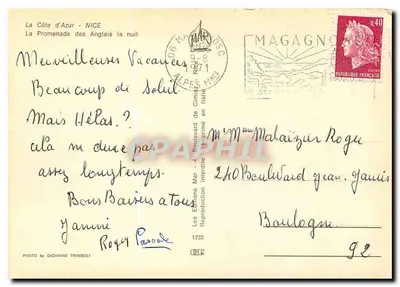 La Côte d'Azur - NICE
La Promenade des Anglais la nuit
Merveilleuses Vacances
Beaucoup de Soleil
Mais Hélas ?
cela ne dure pas
assez longtemps.
Bons Baisers a tous
Janine
Roger Pascale
PHOTO by GIOVANNI TRIMBOLI
Les Editions Mar
Reproduction Interdite
1232
06
8
1971
ALPES MMES
MAGAGNOSC
0,40
REPUBLIQUE FRANCAISE
DELCAMPE
Mr Mme Malaizier Roger
240 Boulevard Jean Jaurès
Boulogne
92